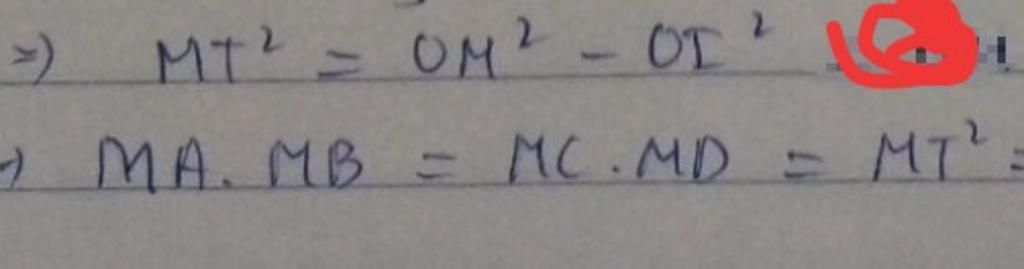 => MT² = OM² - OI²
→ MA. MB = MC . MD = MT² =